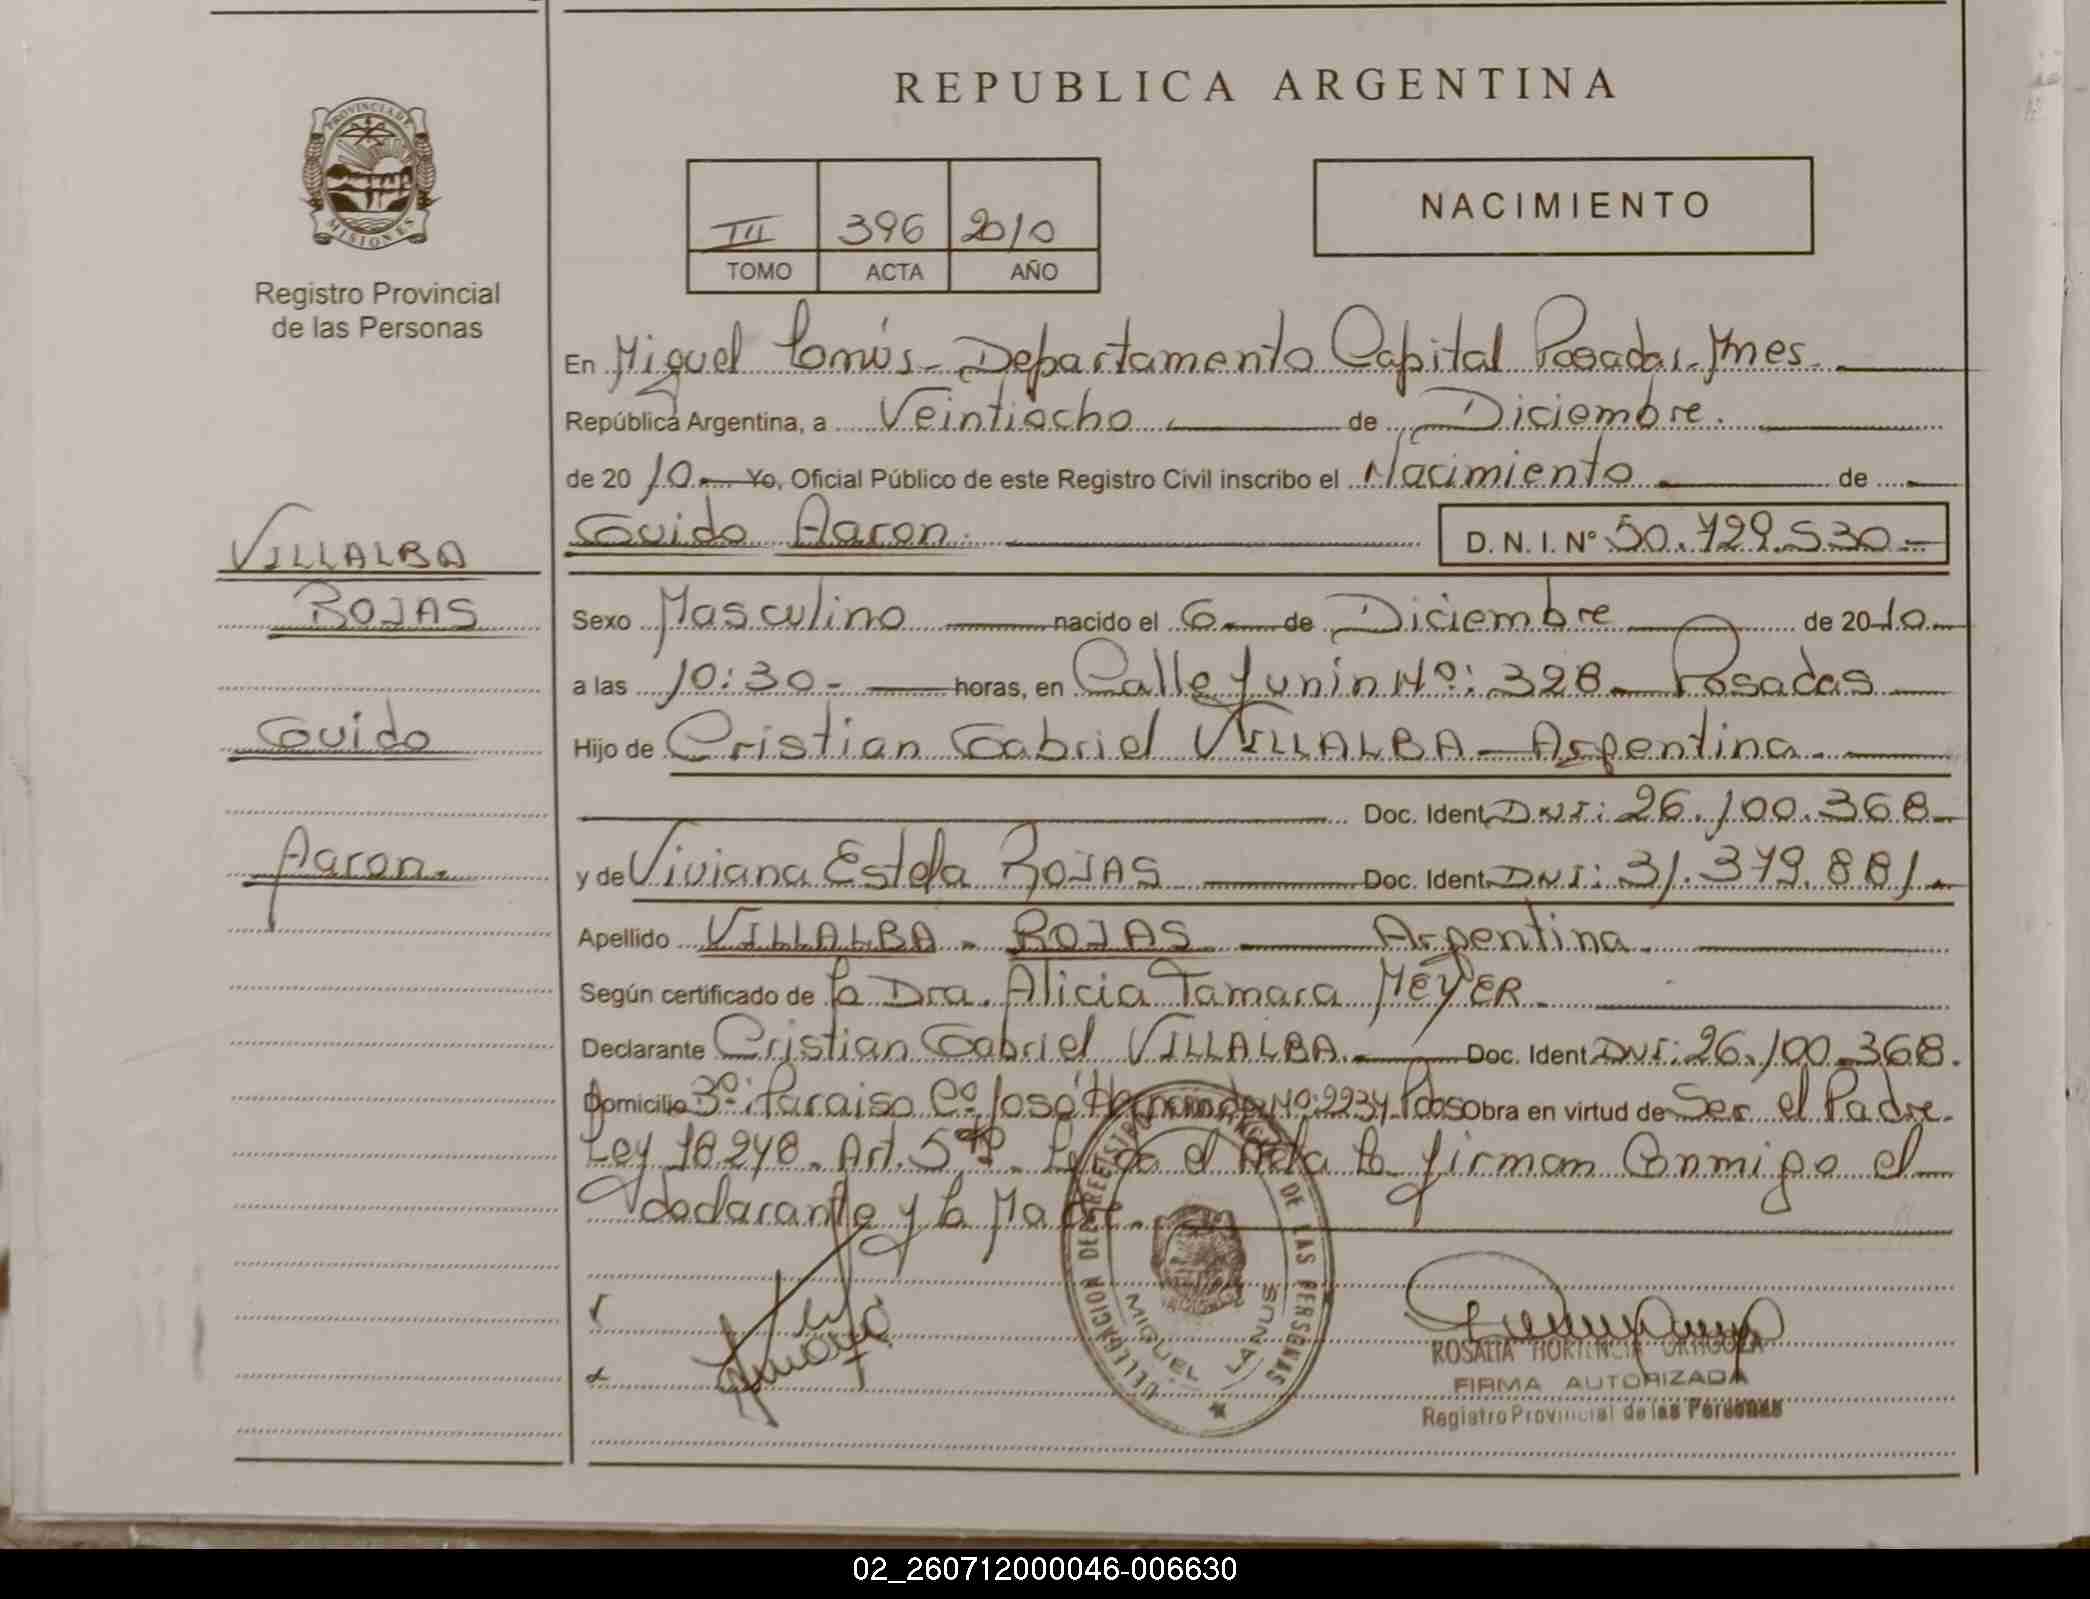 REPUBLICA ARGENTINA
PROVINCIA DE MISIONES
Registro Provincial
de las Personas
III 396 2010
TOMO ACTA AÑO
NACIMIENTO
En Miguel Lanús - Departamento Capital Posadas - Mnes.
República Argentina, a Veintiocho de Diciembre.
de 2010.- Yo, Oficial Público de este Registro Civil inscribo el Nacimiento de
Guido Aaron. D. N. I. Nº 50.729.530.-
VILLALBA
ROJAS
Guido
Aaron.
Sexo Masculino nacido el 6 de Diciembre de 2010.-
a las 10:30.- horas, en Calle Junin Nº: 328 - Posadas
Hijo de Cristian Gabriel VILLALBA - Argentina.-
Doc. Ident. DNI: 26.100.368.-
y de Viviana Estela ROJAS Doc. Ident. DNI: 31.379.881.-
Apellido VILLALBA - ROJAS Argentina.
Según certificado de la Dra. Alicia Tamara MEYER.
Declarante Cristian Gabriel VILLALBA. Doc. Ident. DNI: 26.100.368.
Domicilio Bº: Paraiso Cº José Hernandez Nº: 2234 Pdas obra en virtud de Ser el Padre.
Ley 18248. Art. 5º el Acta la firman Conmigo el
declarante y la Madre.
DELEGACION DEL REGISTRO DE LAS PERSONAS
MIGUEL LANUS
ROSALIA HORTENCIA
FIRMA AUTORIZADA
Registro Provincial de las Personas
02_260712000046-006630